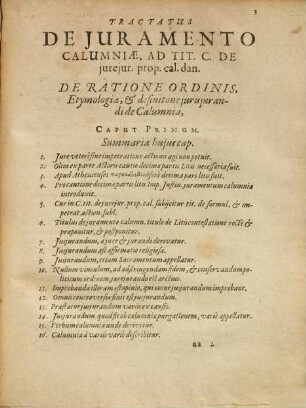 3
TRACTATUS
DE JURAMENTO
CALUMNIÆ, AD TIT. C. DE
jurejur. prop. cal. dan.
DE RATIONE ORDINIS,
Etymologia, & definitone jurisjuran-
di de Calumnia,
CAPUT PRIMUM.
Summaria hujus cap.
1. Jure veteri sine impetratione actionum agi non potuit.
2. Olim ex parte Actoris cautio decimæ partis Litis necessaria fuit.
3. Apud Athenienses decima pars litis fuit.
4. Pro cautione decimæ partis litis Imp. Justin. juramentum calumniæ introduxit.
5. Cur in C. tit. de jurejur. prop. cal. subjicitur tit. de formul. & im-
petrat. action. subl.
6. Titulus de juramento calumn. titulo de Litis contestatione recte &
præponitur, & postponitur.
7. Jusjurandum, à jure & jurando derivatur.
8. Jusjurandum est affirmatio religiosa.
9. Jusjurandum, etiam Sacramentum appellatur.
10. Nullum vinculum, ad adstringendam fidem, & conservandum po-
liticum ordinem jurejurando est arctius.
11. Improbanda illorum est opinio, qui omne jusjurandum improbant.
12. Omnis controversiæ finis est jusjurandum.
13. Præstatur jusjurandum variis ex causis.
14. Jusjurandum quod fit ob calumniæ purgationem, variè appellatur.
15. Verbum calumnia unde derivetur.
16. Calumnia à variis variè describitur.
aa 2